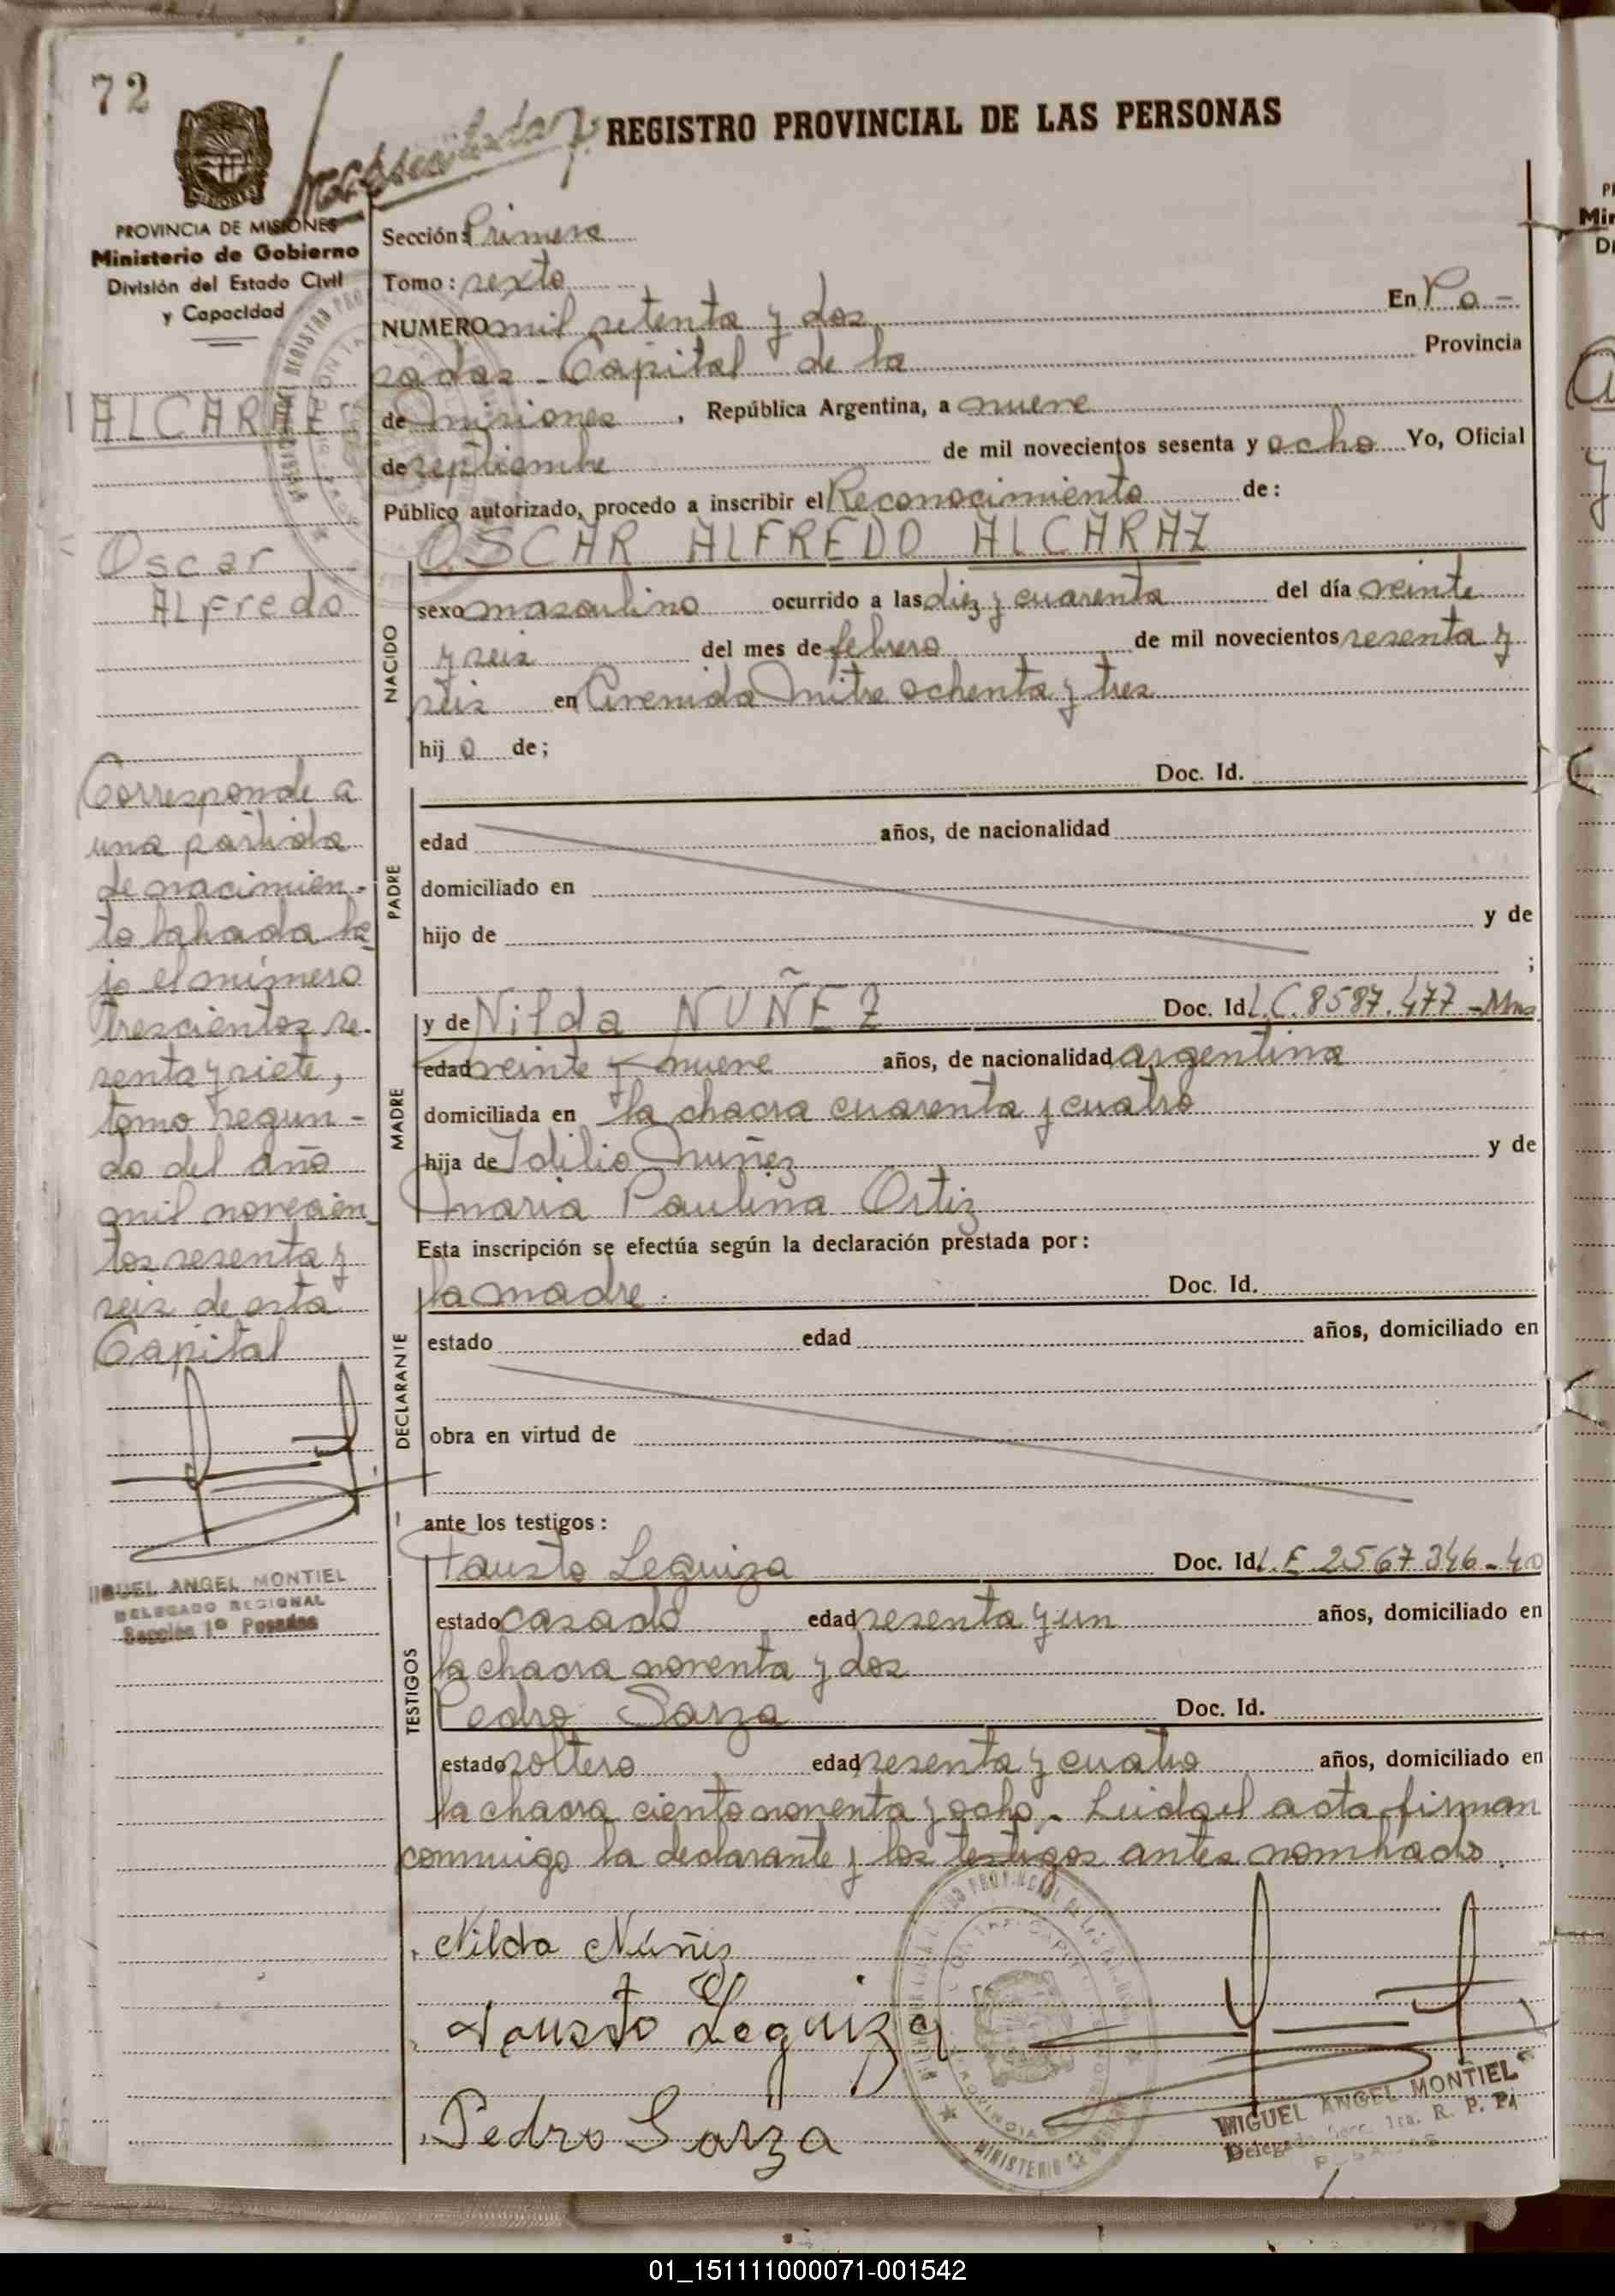 72
REGISTRO PROVINCIAL DE LAS PERSONAS
PROVINCIA DE MISIONES
Ministerio de Gobierno
División del Estado Civil
y Capacidad
Sección: Primera
Tomo: sexto
NUMERO mil setenta y dos En Po-
sadas - Capital de la Provincia
de Misiones, República Argentina, a nueve
de septiembre de mil novecientos sesenta y ocho Yo, Oficial
Público autorizado, procedo a inscribir el Reconocimiento de:
OSCAR ALFREDO ALCARAZ
NACIDO
sexo masculino ocurrido a las diez y cuarenta del día veinte
y seis del mes de febrero de mil novecientos sesenta y
seis en Avenida Mitre ochenta y tres
hij o de;
PADRE
Doc. Id.
edad años, de nacionalidad
domiciliado en
hijo de y de
;
MADRE
y de Nilda NUÑEZ Doc. Id L.C. 8587.477 - Mnes
edad veinte y nueve años, de nacionalidad argentina
domiciliada en la chacra cuarenta y cuatro
hija de Idilio Nuñez y de
Maria Paulina Ortiz
Esta inscripción se efectúa según la declaración prestada por:
DECLARANTE
la madre. Doc. Id.
estado edad años, domiciliado en
obra en virtud de
ante los testigos:
TESTIGOS
Fausto Leguiza Doc. Id L.E 2567346-40
estado casado edad sesenta y un años, domiciliado en
la chacra noventa y dos
Pedro Sarza Doc. Id.
estado soltero edad sesenta y cuatro años, domiciliado en
la chacra ciento noventa y ocho - Leida el acta firman
conmigo la declarante y los testigos antes nombrado.
Nilda Núñez
Fausto Leguiza
Pedro Sarza
MIGUEL ANGEL MONTIEL
Secc. 1ra. R. P. P.
ALCARAZ
Oscar
ALfredo
Corresponde a
una partida
de nacimien-
to labrada ba-
jo el número
trescientos se-
senta y siete,
tomo segun-
do del año
mil novecien-
tos sesenta y
seis de esta
Capital
MIGUEL ANGEL MONTIEL
DELEGADO REGIONAL
Sección 1º Posadas
01_151111000071-001542